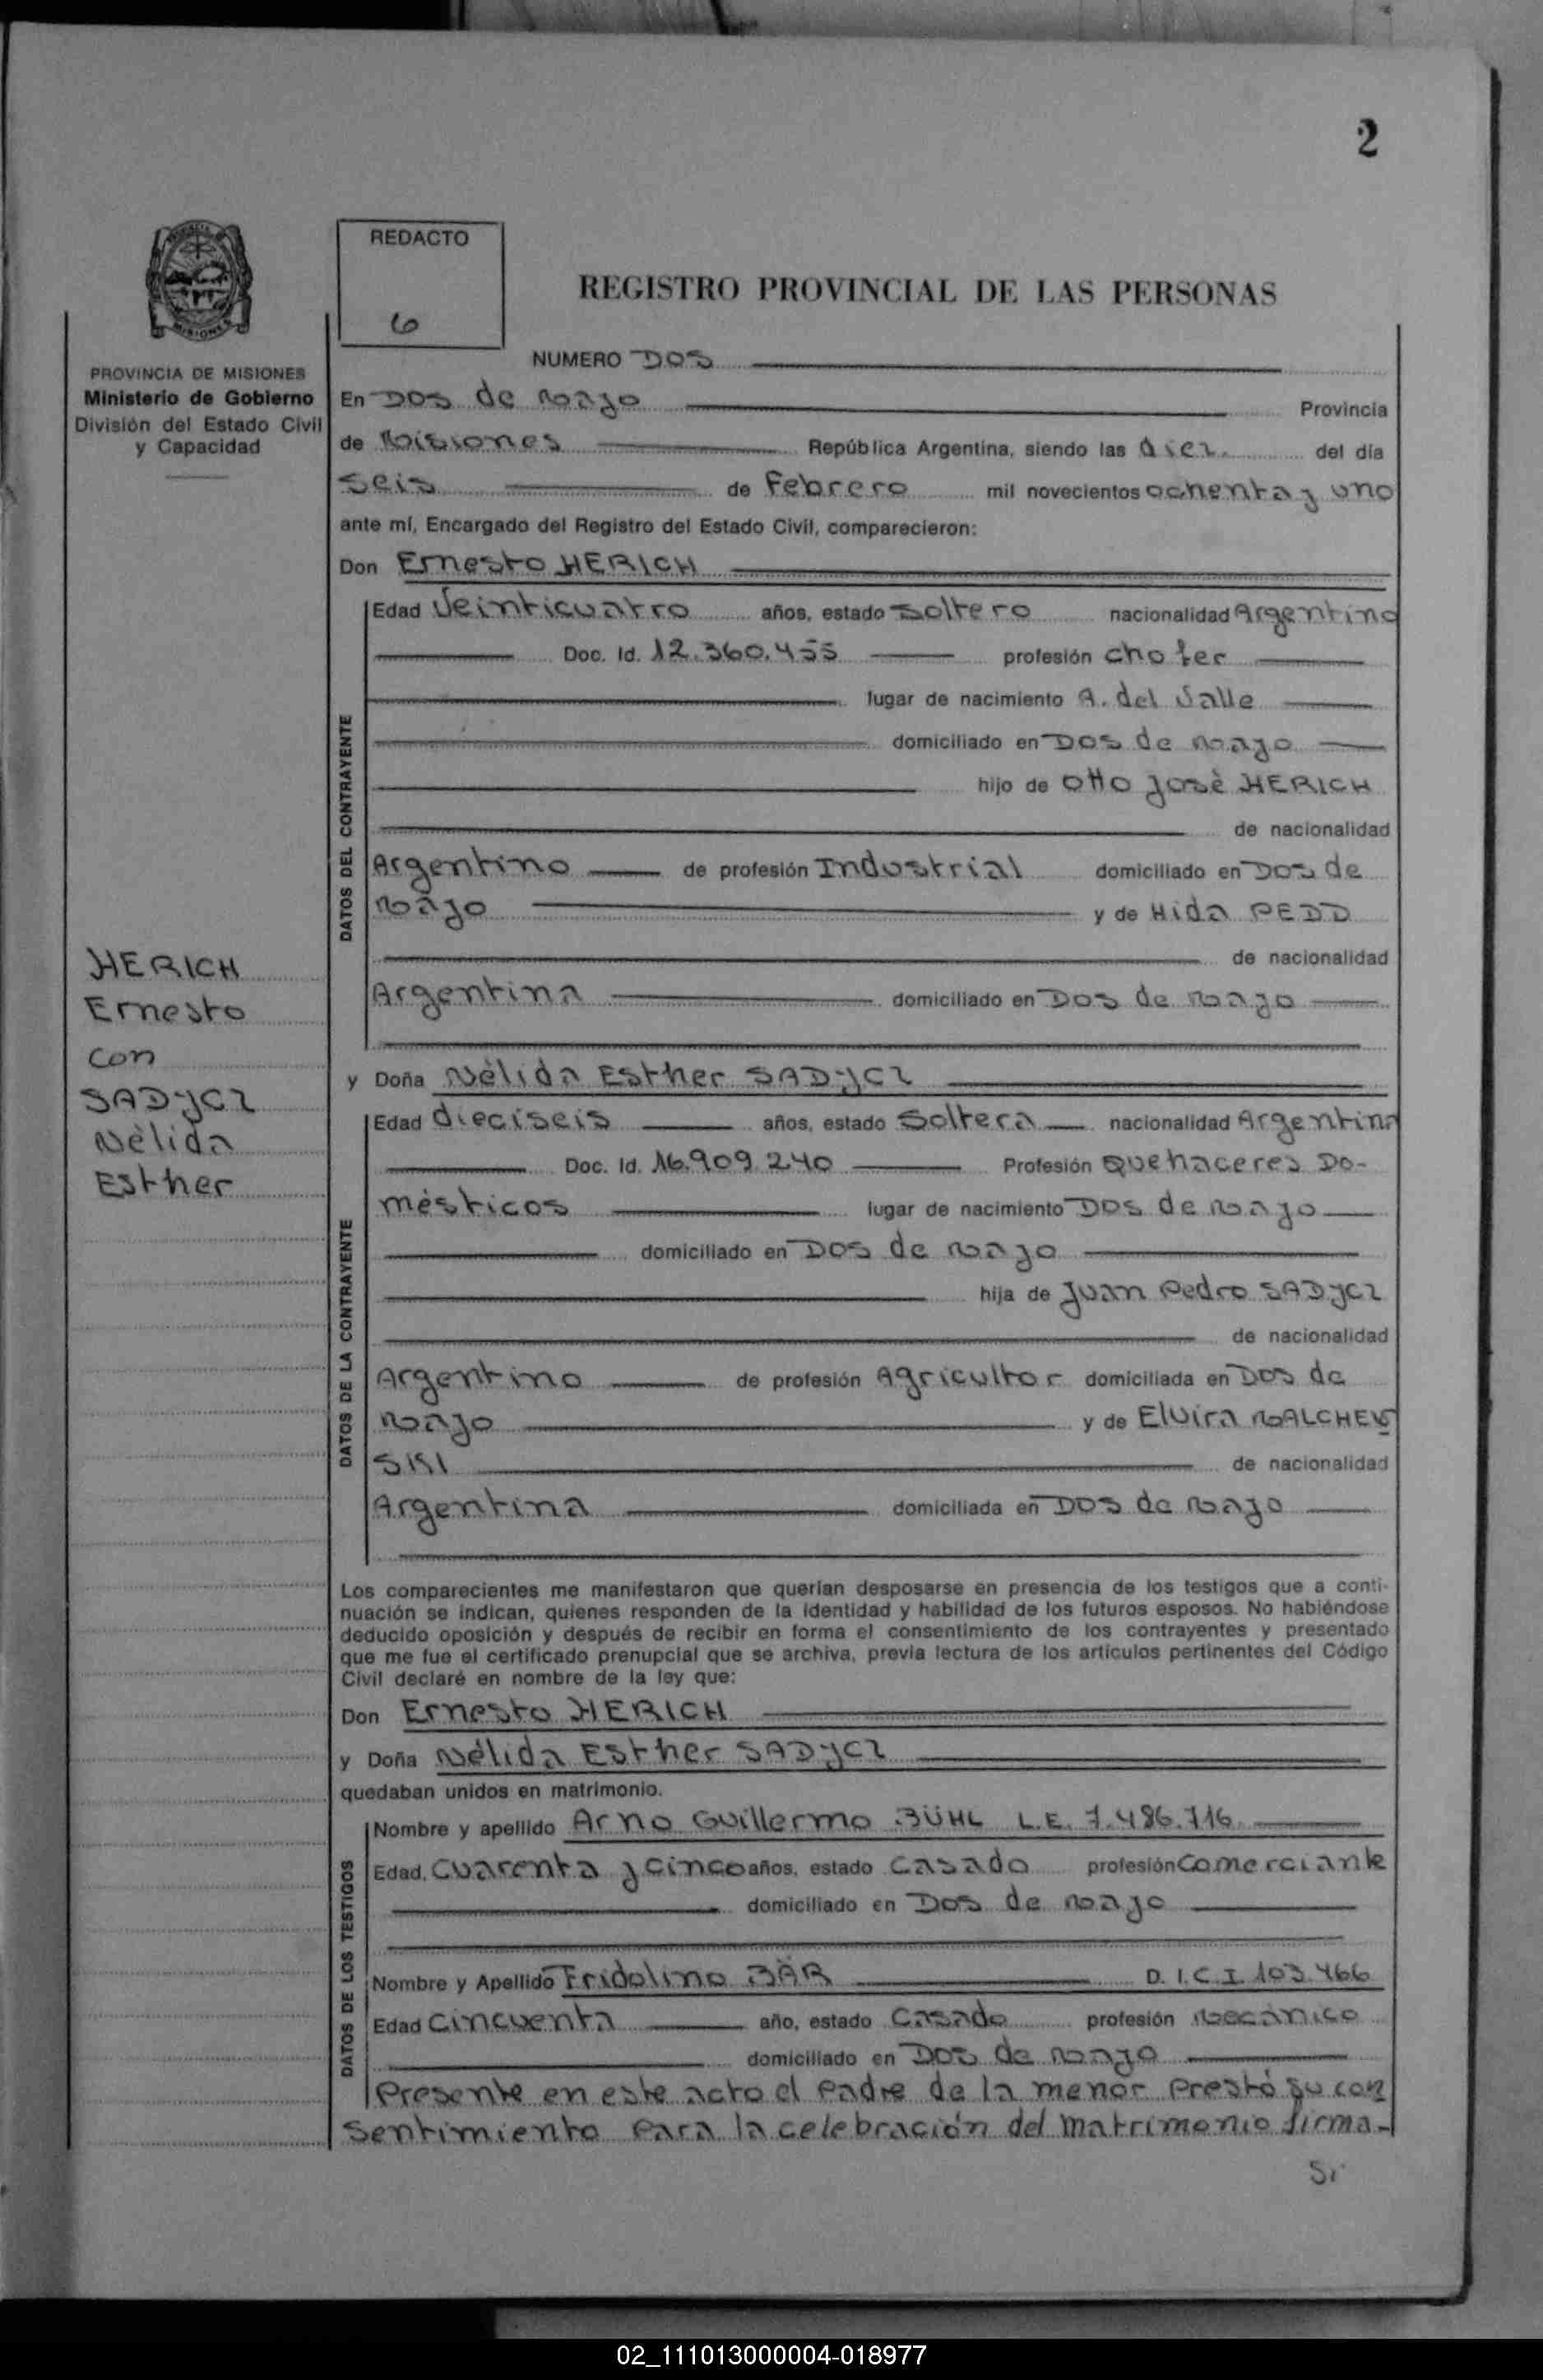 2
REDACTO
6
REGISTRO PROVINCIAL DE LAS PERSONAS
PROVINCIA DE MISIONES
Ministerio de Gobierno
División del Estado Civil
y Capacidad
NUMERO DOS
En DOS de Mayo Provincia
de Misiones República Argentina, siendo las diez del día
seis de Febrero mil novecientos ochenta y uno
ante mí, Encargado del Registro del Estado Civil, comparecieron:
Don Ernesto HERICH
DATOS DEL CONTRAYENTE
Edad Veinticuatro años, estado soltero nacionalidad Argentino
Doc. Id. 12.360.455 profesión chofer
lugar de nacimiento A. del Valle
domiciliado en DOS de Mayo
hijo de Otto José HERICH
de nacionalidad
Argentino de profesión Industrial domiciliado en DOS de
Mayo y de Hida PEDD
de nacionalidad
Argentina domiciliado en DOS de Mayo
HERICH
Ernesto
con
SADYCZ
Nélida
Esther
y Doña Nélida Esther SADYCZ
DATOS DE LA CONTRAYENTE
Edad dieciseis años, estado Soltera nacionalidad Argentina
Doc. Id. 16.909.240 Profesión Quehaceres Do-
mésticos lugar de nacimiento DOS de Mayo
domiciliado en DOS de Mayo
hija de Juan Pedro SADYCZ
de nacionalidad
Argentino de profesión Agricultor domiciliada en DOS de
Mayo y de Elvira MALCHEW
SKI de nacionalidad
Argentina domiciliada en DOS de Mayo
Los comparecientes me manifestaron que querían desposarse en presencia de los testigos que a conti-
nuación se indican, quienes responden de la identidad y habilidad de los futuros esposos. No habiéndose
deducido oposición y después de recibir en forma el consentimiento de los contrayentes y presentado
que me fue el certificado prenupcial que se archiva, previa lectura de los artículos pertinentes del Código
Civil declaré en nombre de la ley que:
Don Ernesto HERICH
y Doña Nélida Esther SADYCZ
quedaban unidos en matrimonio.
DATOS DE LOS TESTIGOS
Nombre y apellido Arno Guillermo BÜHL L.E. 7.486.716
Edad, Cuarenta y cinco años, estado Casado profesión Comerciante
domiciliado en DOS de Mayo
Nombre y Apellido Fridolino BÄR D.I.C.I. 103.466
Edad Cincuenta año, estado Casado profesión Mecánico
domiciliado en DOS de Mayo
Presente en este acto el Padre de la menor prestó su con
sentimiento para la celebración del matrimonio firma-
02_111013000004-018977